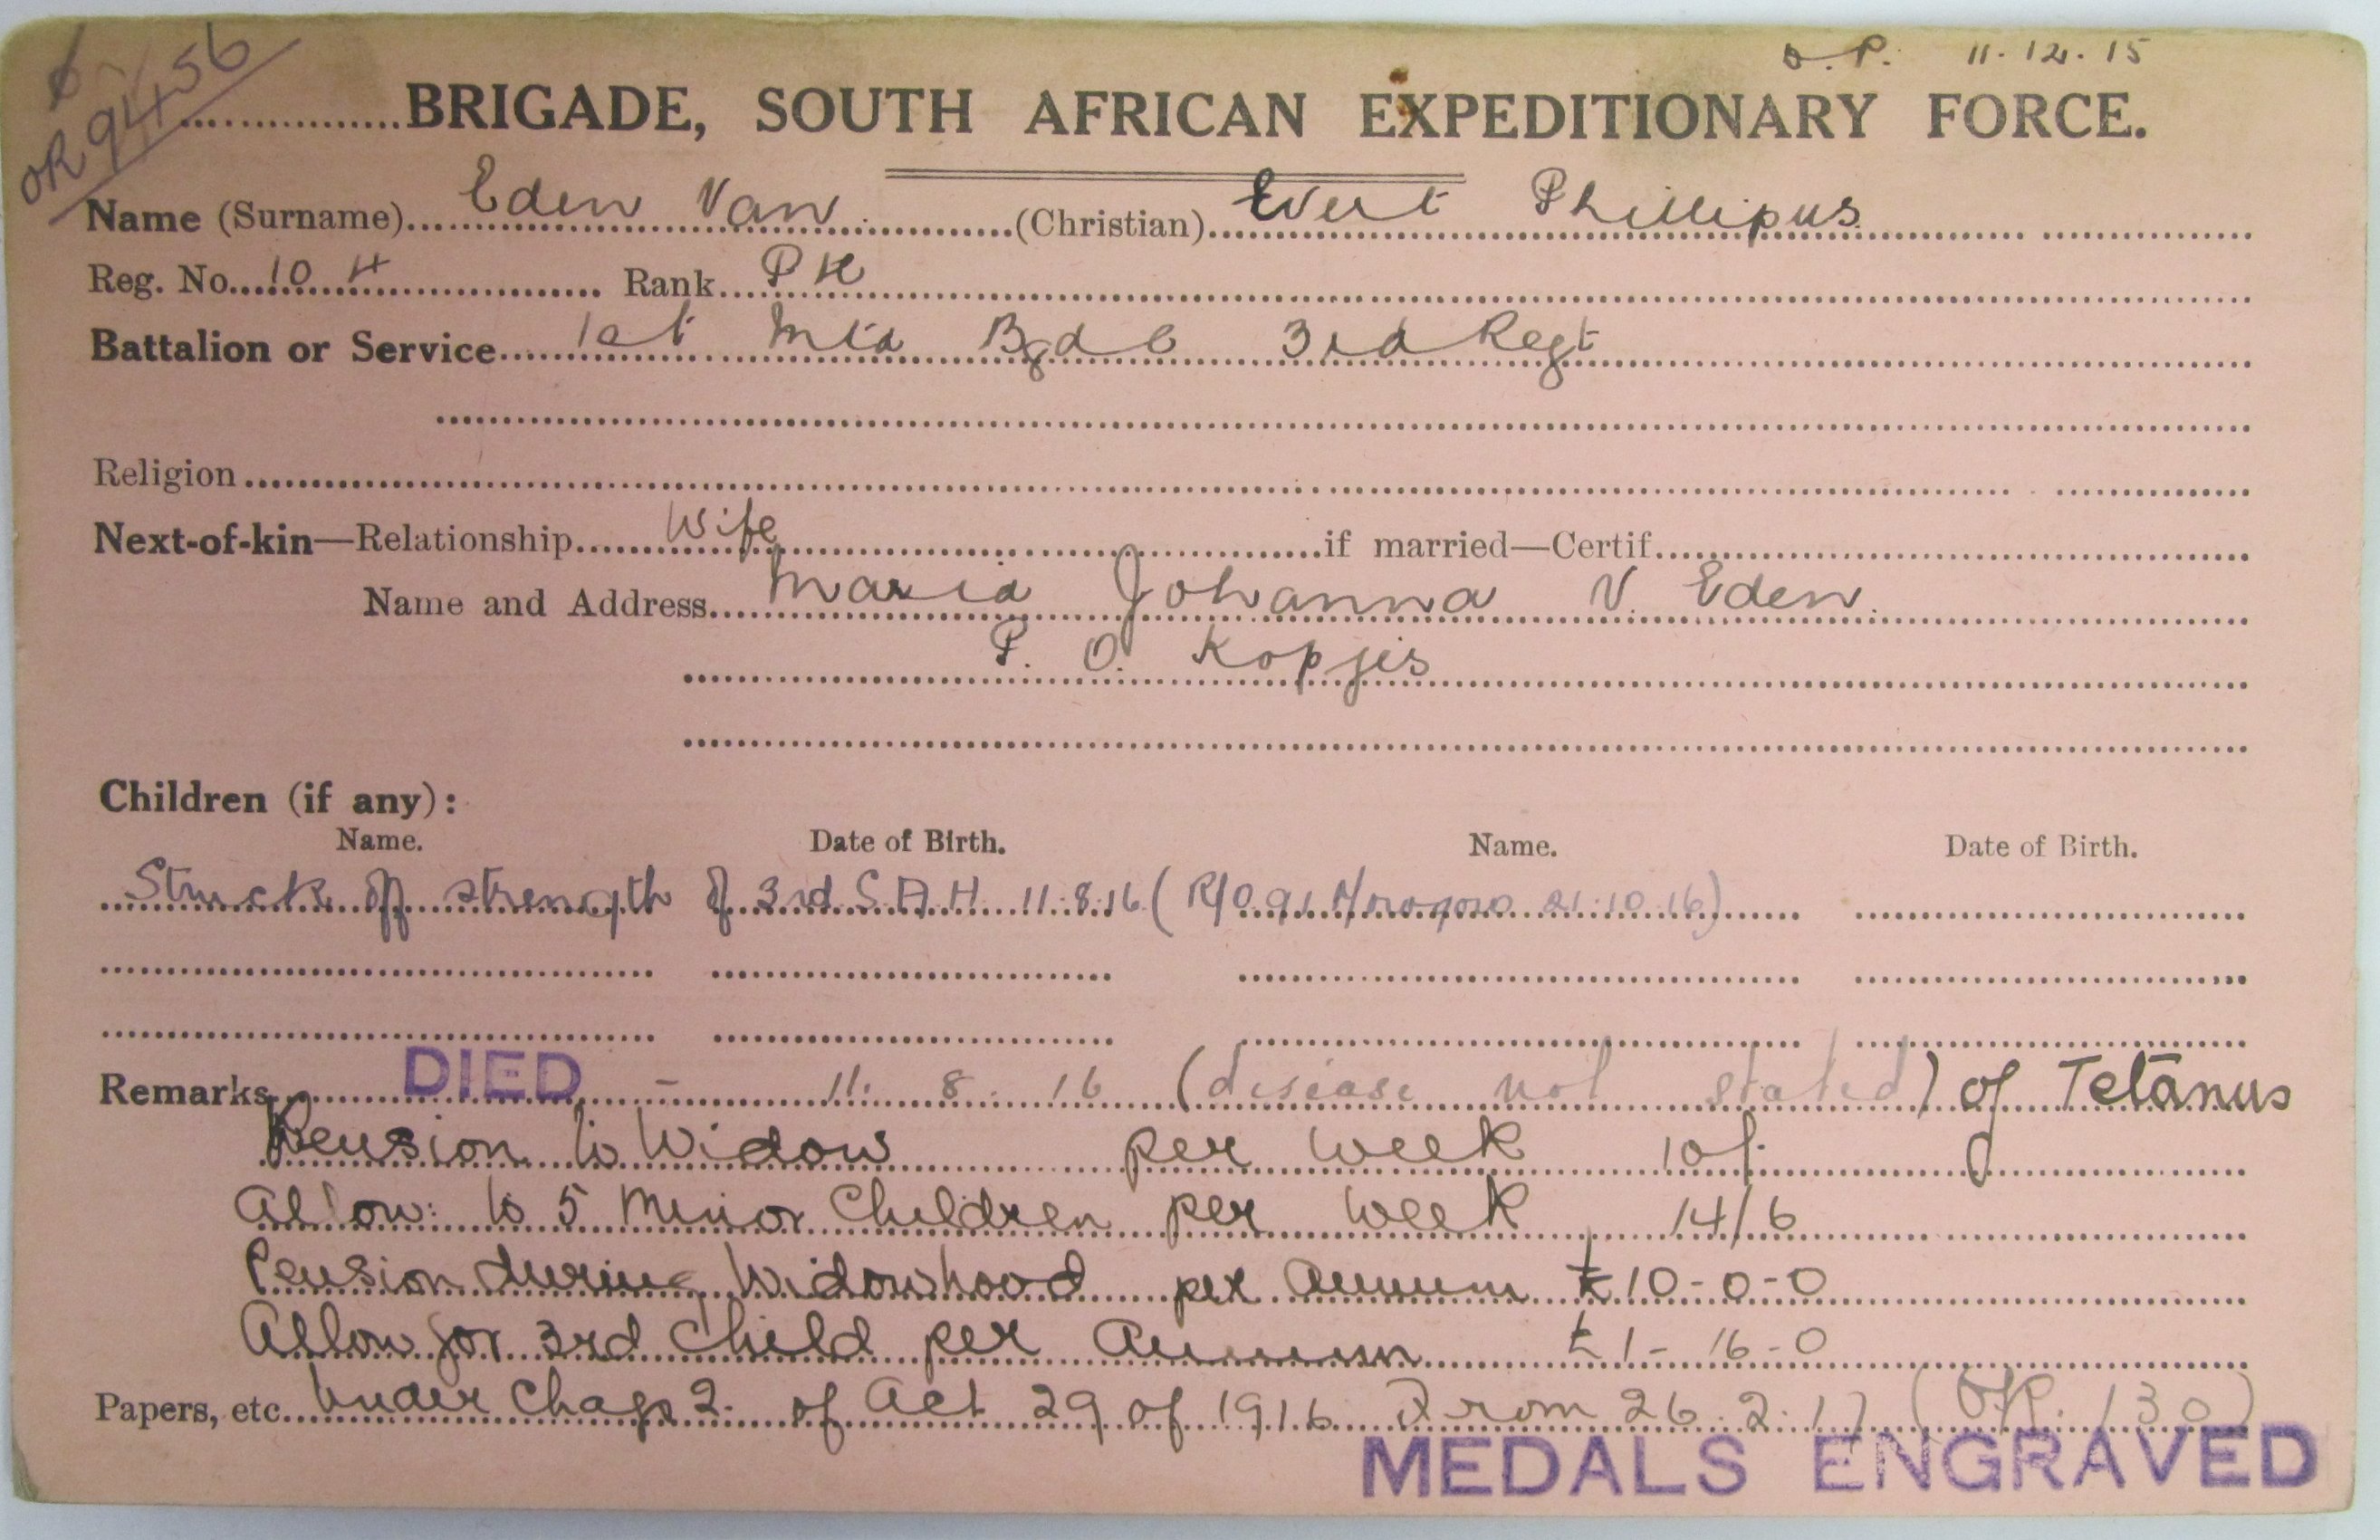 D.P. 11.12.15
OR 9456
BRIGADE, SOUTH AFRICAN EXPEDITIONARY FORCE.
Name (Surname) Eden Van (Christian) Evert Phillipus
Reg. No. 10 H Rank Pte
Battalion or Service 1st Mtd Bgde 3rd Regt
Religion
Next-of-kin—Relationship Wife if married—Certif.
Name and Address Maria Johanna V. Eden.
P. O. Kopjes
Children (if any):
Name. Date of Birth. Name. Date of Birth.
Struck off strength of 3rd S.A.H. 11.8.16 (R/O 91 Morogoro 21.10.16)
Remarks DIED - 11. 8. 16 (disease not stated) of Tetanus
Pension to Widow per week 10/-
Allow: to 5 Minor Children per week 14/6
Pension during Widowhood per Annum £10-0-0
Allow for 3rd Child per Annum £1-16-0
Papers, etc. Under Chap 2. of Act 29 of 1916 From 26.2.17 (O/P. 130)
MEDALS ENGRAVED